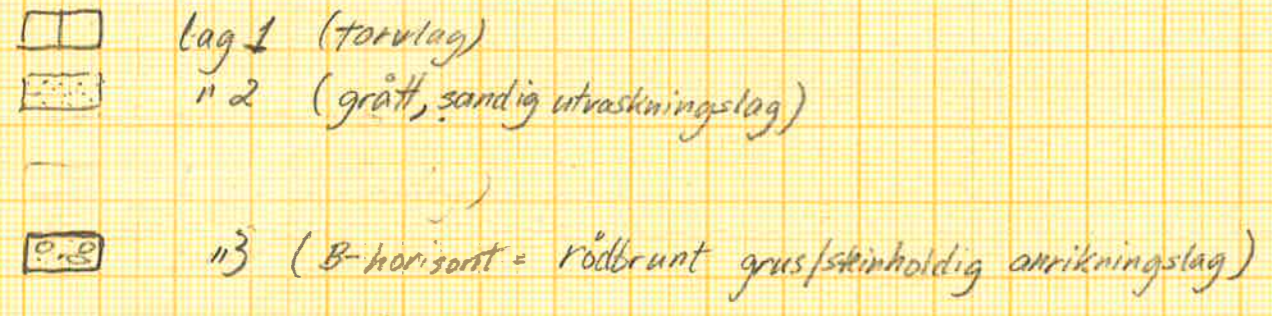 lag 1 (torvlag)
" 2 (grått, sandig utvaskningslag)
" 3 (B-horisont = rödbrunt grus/steinholdig anrikningslag)